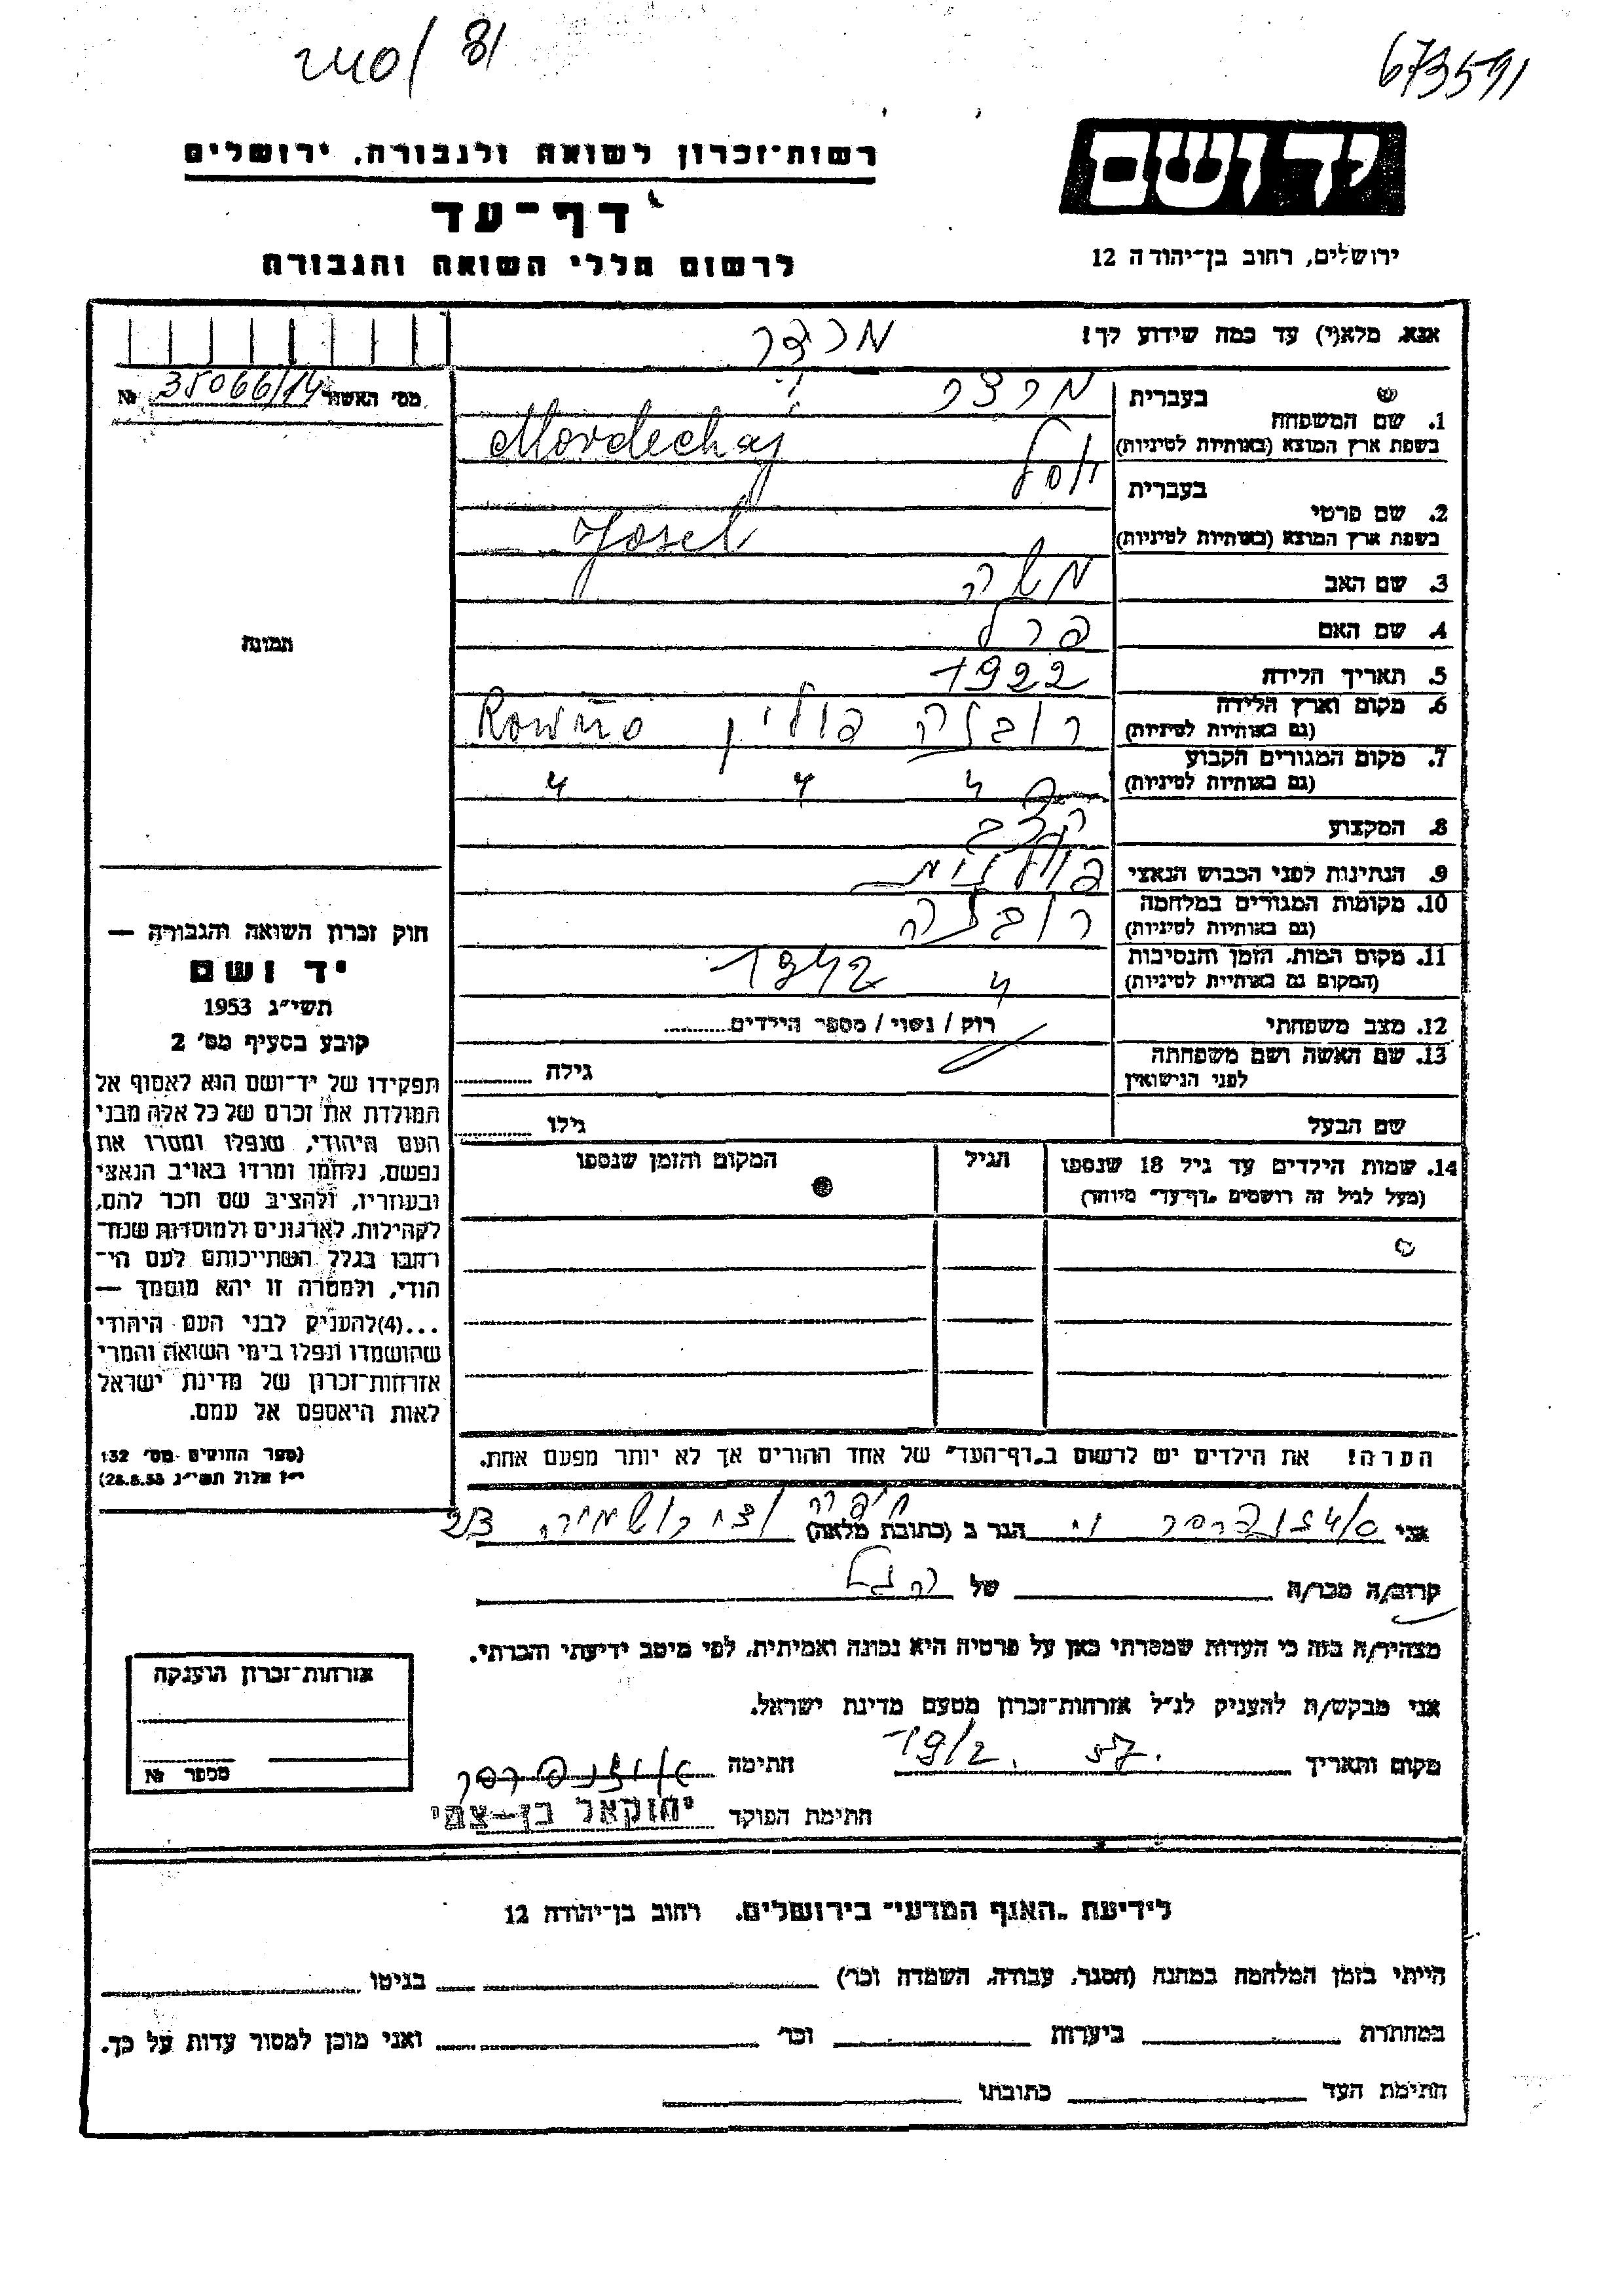 240/81
673591
יד ושם
רשות־זכרון לשואה ולגבורה, ירושלים
דף־עד
לרשום חללי השואה והגבורה
ירושלים, רחוב בן־יהודה 12
אנא, מלא(י) עד כמה שידוע לך!
מס' האשור 35066/14 №
1. שם המשפחה
בעברית
בשפת ארץ המוצא (באותיות לטיניות) Mordechaj
2. שם פרטי
בעברית יוסל
בשפת ארץ המוצא (באותיות לטיניות) Josel
3. שם האב משה
4. שם האם פרל
5. תאריך הלידה 1922
6. מקום וארץ הלידה רובנה פולין Rowno
(גם באותיות לטיניות)
7. מקום המגורים הקבוע " " "
(גם באותיות לטיניות)
8. המקצוע
9. הנתינות לפני הכבוש הנאצי פולנית
10. מקומות המגורים במלחמה רובנה
(גם באותיות לטיניות)
11. מקום המות, הזמן והנסיבות " 1942
(המקום גם באותיות לטיניות)
12. מצב משפחתי רוק / נשוי / מספר הילדים
13. שם האשה ושם משפחתה
לפני הנישואין
גילה
שם הבעל גילו
14. שמות הילדים עד גיל 18 שנספו
(מעל לגיל זה רושמים „דף־עד" מיוחד)
הגיל
המקום והזמן שנספו
הערה! את הילדים יש לרשום ב„דף־העד" של אחד ההורים אך לא יותר מפעם אחת.
תמונה
חוק זכרון השואה והגבורה —
יד ושם
תשי"ג 1953
קובע בסעיף מס' 2
תפקידו של יד־ושם הוא לאסוף אל
המולדת את זכרם של כל אלה מבני
העם היהודי, שנפלו ומסרו את
נפשם, נלחמו ומרדו באויב הנאצי
ובעוזריו, ולהציב שם וזכר להם,
לקהילות, לארגונים ולמוסדות שנח־
רבו בגלל השתייכותם לעם הי־
הודי, ולמטרה זו יהא מוסמך —
...(4) להעניק לבני העם היהודי
שהושמדו ונפלו בימי השואה והמרי
אזרחות־זכרון של מדינת ישראל
לאות היאספם אל עמם.
(ספר החוקים מס' 132
י"ז אלול תשי"ג 28.8.53)
אני הגר ב (כתובת מלאה) חיפה
קרוב/ה מכר/ה של הנ"ל
מצהיר/ה בזה כי העדות שמסרתי כאן על פרטיה היא נכונה ואמיתית, לפי מיטב ידיעתי והכרתי.
אני מבקש/ת להעניק לנ"ל אזרחות־זכרון מטעם מדינת ישראל.
מקום ותאריך 19/2. 57. חתימה
חתימת הפוקד יחזקאל בן-צמי
אזרחות־זכרון הוענקה
מספר №
לידיעת „האגף המדעי" בירושלים, רחוב בן־יהודה 12
הייתי בזמן המלחמה במחנה (הסגר, עבודה, השמדה וכו') בגיטו
במחתרת ביערות וכו' ואני מוכן למסור עדות על כך.
חתימת העד כתובתו